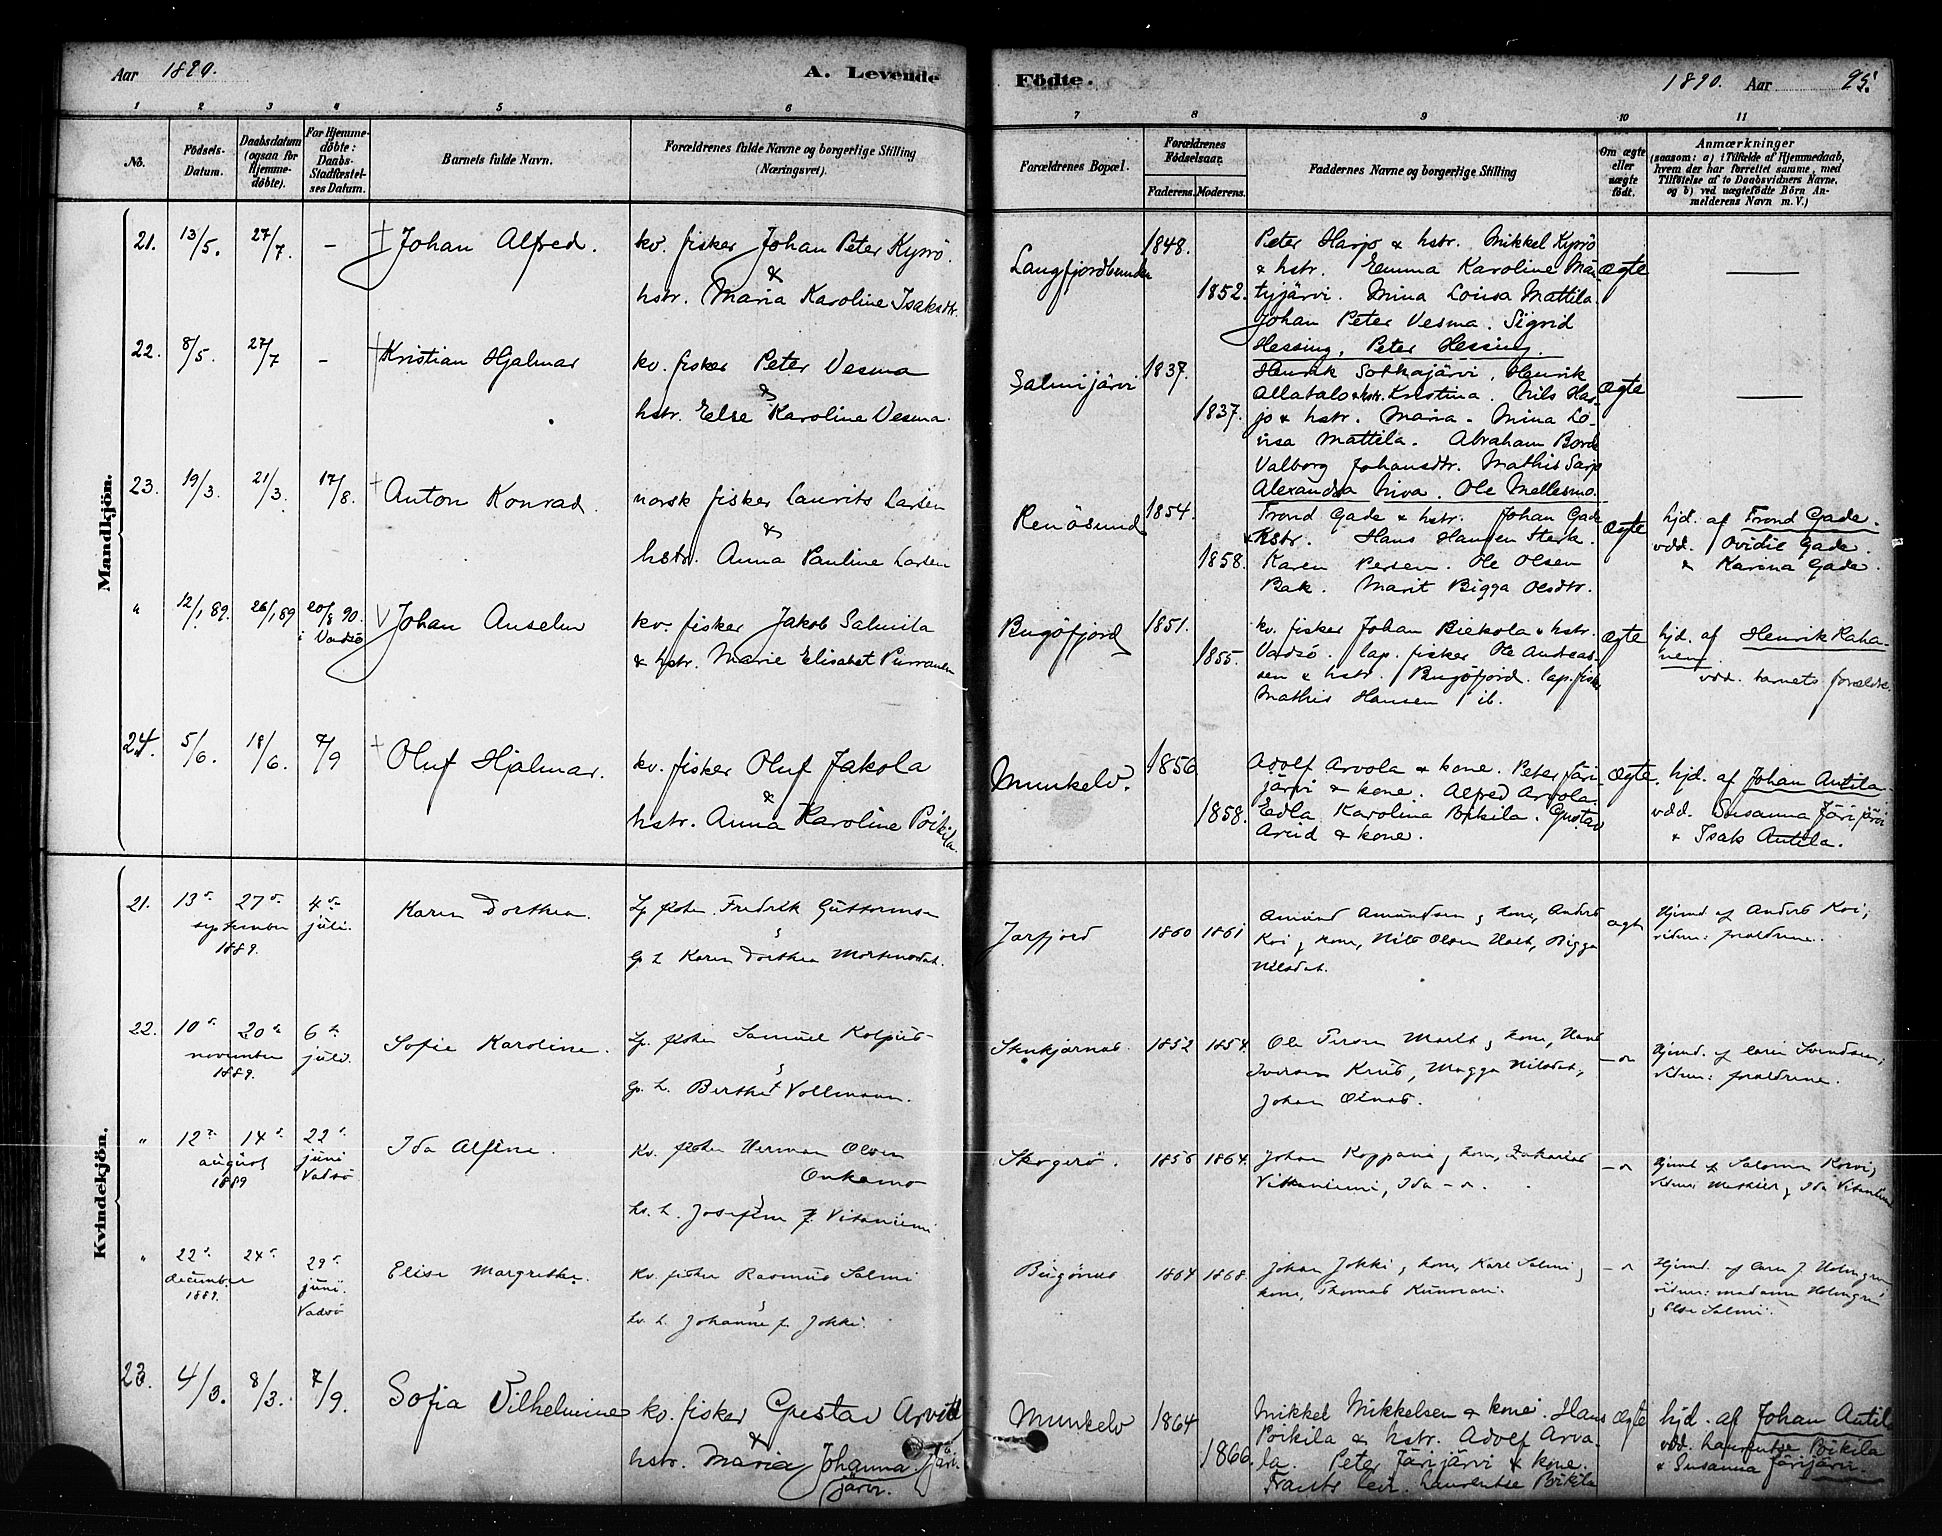 Aar 1890.
A. Levende Födte.
1890. Aar 95.
1 2 3 4 5 6 7 8 9 10 11
No.
Födsels-Datum.
Daabsdatum (ogsaa for Hjemme-döbte).
For Hjemme-döbte: Daabs-Stadfæstel-ses Datum.
Barnets fulde Navn.
Forældrenes fulde Navne og borgerlige Stilling (Næringsvei).
Forældrenes Bopæl.
Forældrenes Födselsaar.
Faderens. Moderens.
Faddernes Navne og borgerlige Stilling
Om ægte eller uægte födt.
Anmærkninger
(saasom: a) i Tilfælde af Hjemmedaab, hvem der har forrettet samme, med Tilföielse af to Daabsvidners Navne, og b) ved uægtefödte Börn Anmelderens Navn m. V.)
Mandkjön.
21. 13/5. 27/7. – Johan Alfred.
kv. fisker Johan Peter Kyrö.
&
hstr. Maria Karoline Isaksdtr.
Langfjordbunden 1848. 1852.
Peter Harjo & hstr. Mikkel Kyrö
& hstr. Emma Karoline Mä-
tyjärvi. Mina Lovisa Mattila.
Johan Peter Vesma. Sigrid
Hessing, Peter Hessing.
ægte
22. 8/5. 27/7 – Kristian Hjalmar
kv. fisker Peter Vesma
&
hstr. Else Karoline Vesma.
Salmijärvi 1837. 1837.
Henrik Sotkajärvi, Henrik
Allatalo & hstr. Kristina. Nils Har-
jo & hstr. Maria. Mina Lo-
visa Mattila. Abraham Bords
Valborg Johansdtr. Mathis Sarjo
Alexandra Niva. Ole Mellesmo.
ægte
23. 19/3. 21/3. 17/8. Anton Konrad.
norsk fisker Laurits Larsen
&
hstr. Anna Pauline Larsen
Renösund 1854. 1858.
Trond Gade & hstr. Johan Gade
& hstr. Hans Hansen Sterk.
Karen Persen. Ole Olsen
Bak. Marit Bigga Olsdtr.
ægte
hjd. af Trond Gade.
vdd. Ovidie Gade.
& Karina Gade.
" 12/1 89. 26/1 89 20/8 90. i Vadsö Johan Anselm
kv. fisker Jakob Salmila
& hstr. Marie Elisabet Purranen
Bugöfjord 1851. 1855.
kv. fisker Johan Biekola & hstr.
Vadsö. lap. fisker Ole Andreas-
sen & hstr. Bugöfjord. lap. fisk.
Mathis Hansen ib.
ægte
hjd. af Henrik Raha-
nen.
vdd. barnets forældre.
24. 5/6. 18/6. 7/9 Oluf Hjalmar.
kv. fisker Oluf Jakola
&
hstr. Anna Karoline Poikila.
Munkelv. 1856 1858.
Adolf Arvola & kone. Peter Järi-
järvi & kone. Alfred Arvola.
Edla Karolina Poikila. Gustav
Arvid & kone.
ægte.
hjd. af Johan Antila.
vdd. Susanna Järijärvi
& Isak Antila.
Kvindekjön.
21. 13de 27de september 1889. 4de juli. Karen Dorthea.
Lp. fisker Fredrik Guttormsen
&
Karen Dorthea Mortensdat.
Jarfjord 1860 1861
Amund Amundsen & kone, Anders
Koi & kone, Nils Olsen Halt, Bigga
Nilsdat.
ægte
Hjemd. af Anders Koi,
vidner: forældrene.
22. 10de 20de november 1889. 6te juli. Sofie Karoline.
Lp. fisker Samuel Kolpus
&
Berthe Vollmann.
1852 1854.
Magga Nilsdat,
Johan
vidner: forældrene.
" 12te 14de august 1889 22de juni Vadsö Ida Alfine.
Kv. fisker Herman Olsen
Onkamo
&
Josefine f. Vitaniemi
Skogerö. 1856 1864.
Johan Koppana & kone, Zakarias
Vitaniemi, Ida
" 22de 24de december 1889. 29de juni. Vadsö Elise Margrethe.
Kv. fisker Rasmus Salmi
&
Johanne f. Jokki.
Bugönes 1864 1868.
Johan Jokki & kone, Karl Salmi &
kone, Thomas Kunnari.
J. Holmgren
vidner: madame Holmgren
& Else Salmi.
23. 4/3. 8/3. 7/9. Sofia Vilhelmine
kv. fisker Gustav Arvid
&
hstr. Maria Johanna Järi-
järvi.
Munkelv 1864 1866.
Mikkel Mikkelsen & kone. Hans
Poikila & hstr. Adolf Arvo-
la. Peter Järijärvi & kone.
Laurentse Poikila
ægte
hjd. af Johan Antila
vdd. Laurentse Poikila
& Susanna Järijärvi.